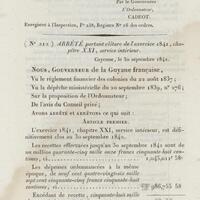 Par le Gouverneur :
L'Ordonnateur,
CADEOT.
Enregistré à l'Inspection, F° 238, Registre N° 26 des ordres.
ARRÊTÉ portant clôture de l'exercice 1841, cha-
pitre XXI, service intérieur.
Cayenne, le 30 septembre 1842.
Nous, Gouverneur de la Guyane française,
Vu le règlement financier des colonies du 22 août 1837;
Vu la dépêche ministérielle du 20 septembre 1839, n° 276;
Sur la proposition de l'Ordonnateur;
De l'avis du Conseil privé;
Avons arrêté et arrêtons ce qui suit :
Article premier.
L'exercice 1841, chapitre XXI, service intérieur, est défi-
nitivement clos au 30 septembre 1842.
Les recettes effectuées jusqu'au 30 septembre 1842 sont de
un million quarante-cinq mille onze francs cinquante-huit
centimes, ci
Les dépenses ordonnancées à la même
époque, de neuf cent quatre-vingt-six mille
sept cent cinquante-cinq francs cinquante-
huit centimes, ci 986,755 58
Excédant de recette, cinquante-huit